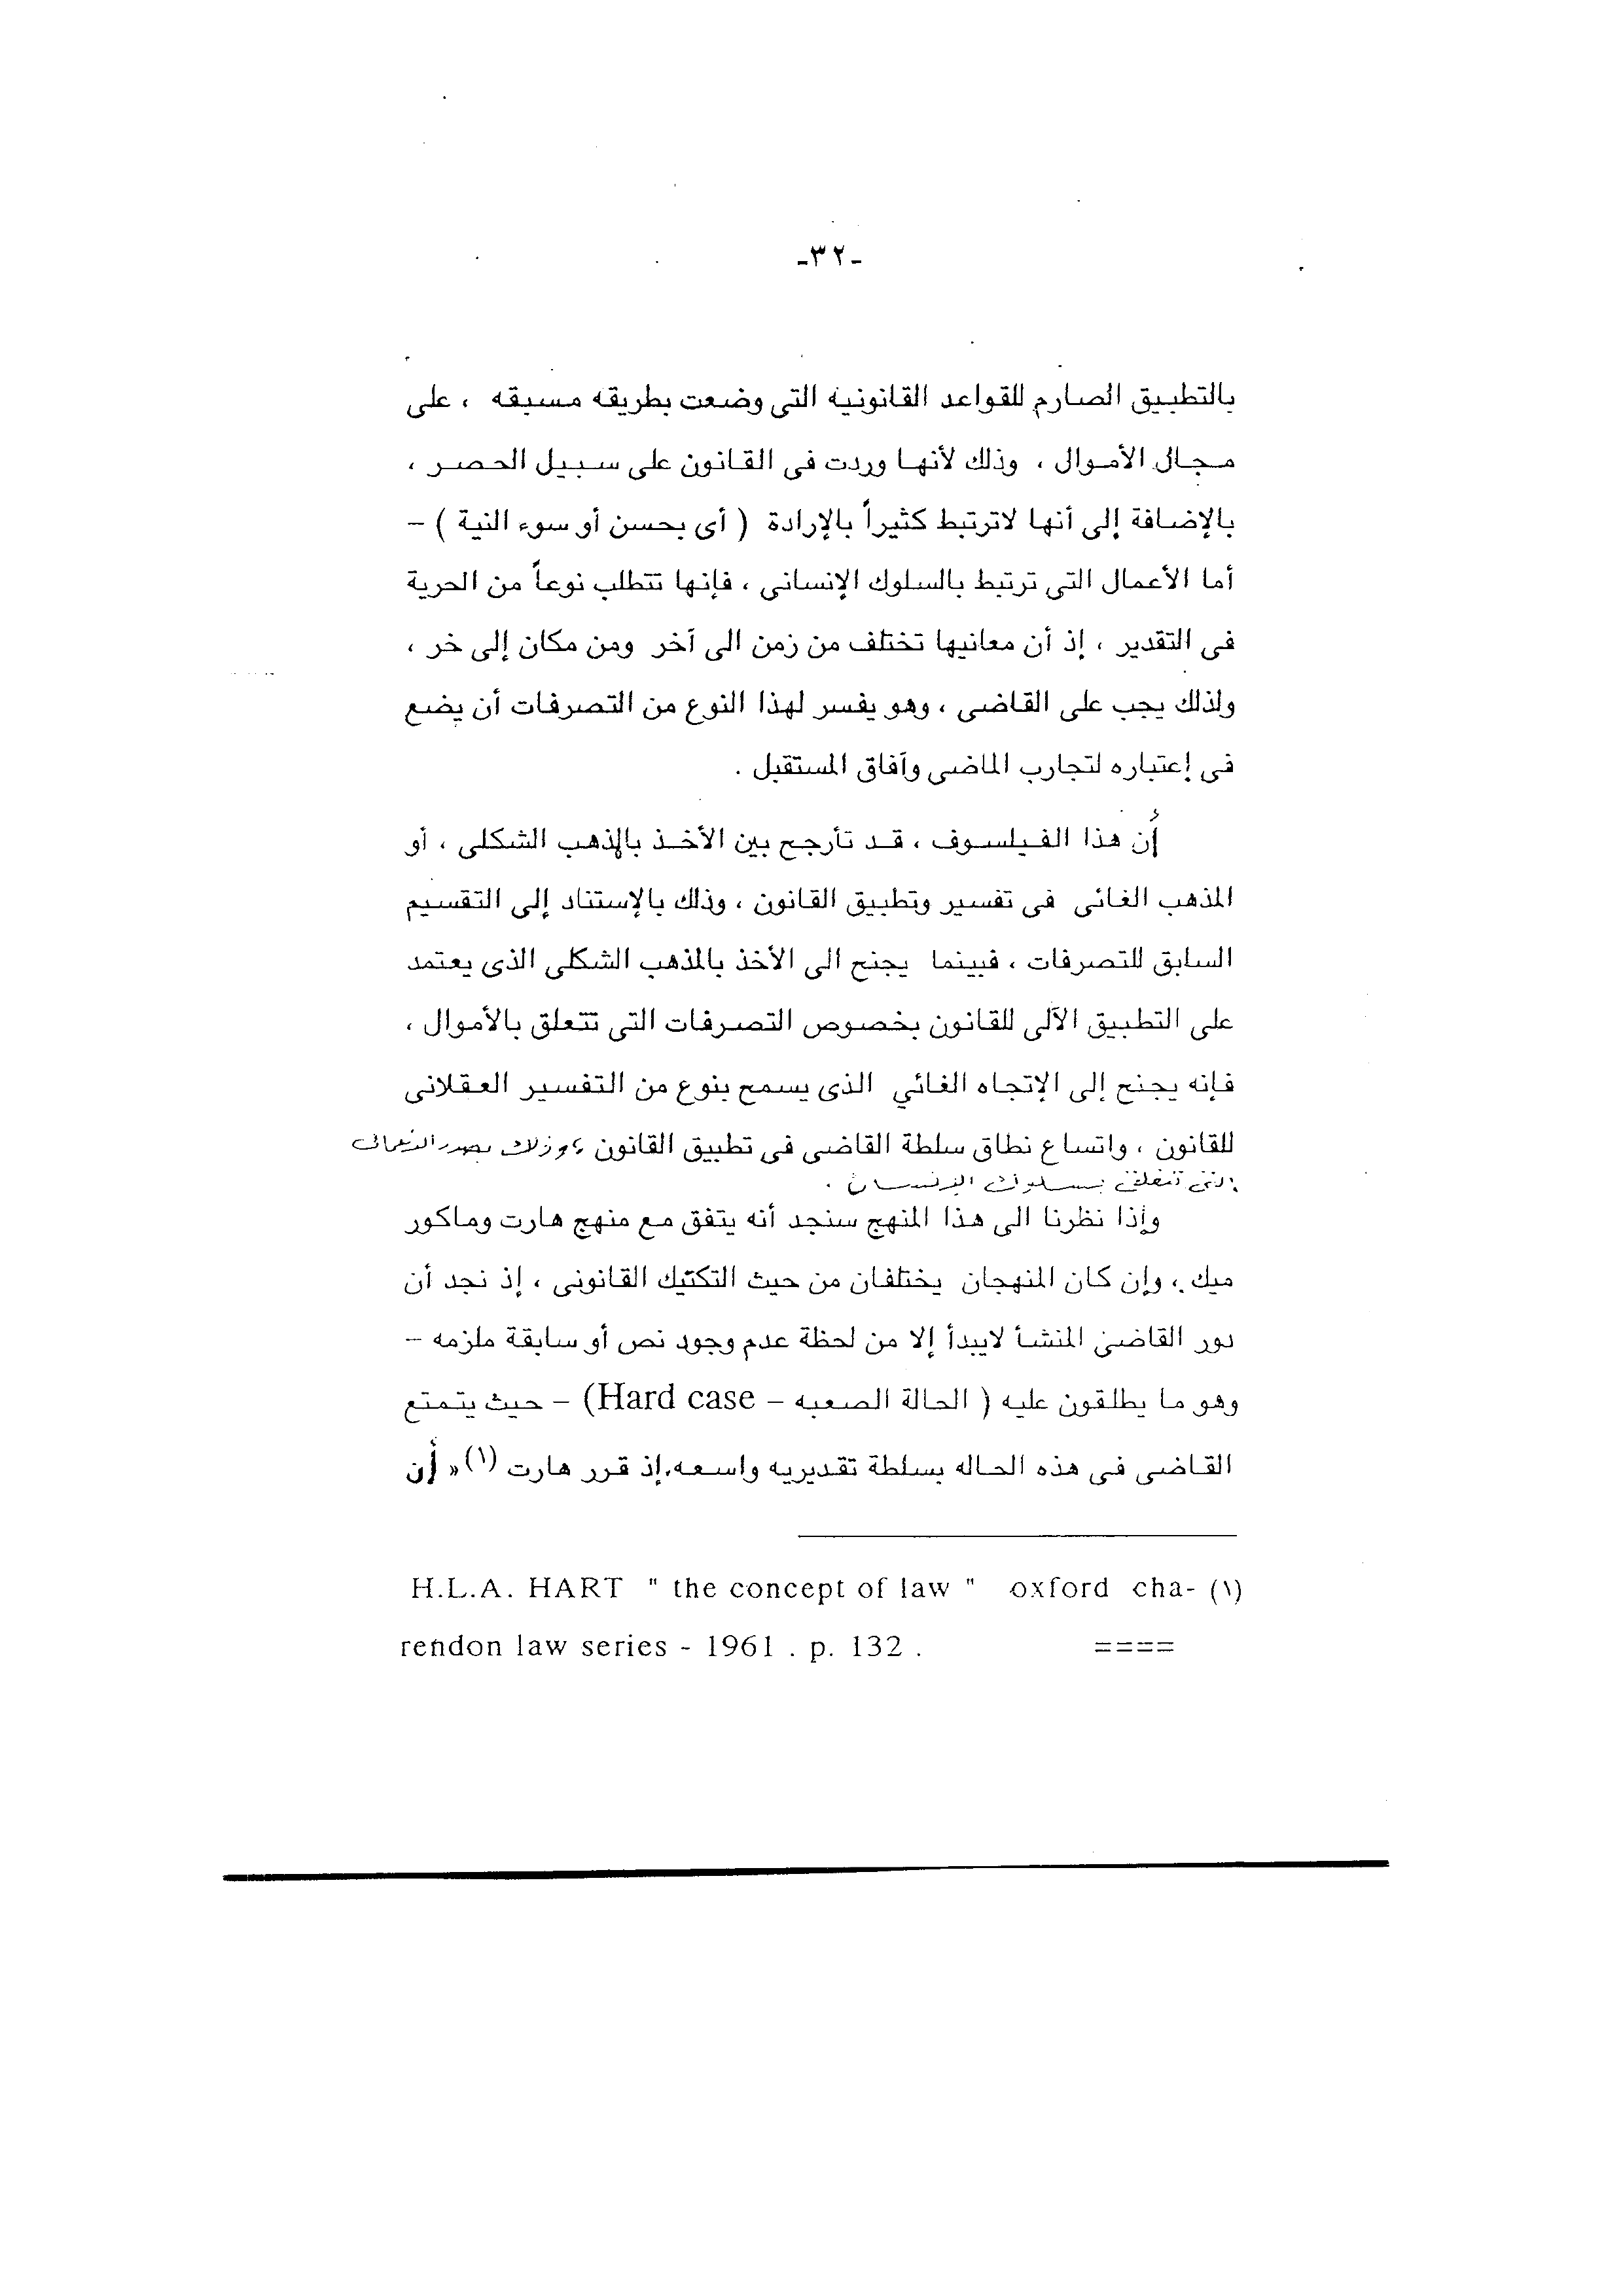 -٣٢-
بالتطبيق الصارم للقواعد القانونيه التى وضعت بطريقه مسبقه ، على
مجال الأموال ، وذلك لأنها وردت فى القانون على سبيل الحصر ،
بالإضافة إلى أنها لاترتبط كثيراً بالإرادة ( أى بحسن أو سوء النية ) –
أما الأعمال التى ترتبط بالسلوك الإنسانى ، فإنها تتطلب نوعاً من الحرية
فى التقدير ، إذ أن معانيها تختلف من زمن الى آخر ومن مكان إلى خر ،
ولذلك يجب على القاضى ، وهو يفسر لهذا النوع من التصرفات أن يضع
فى إعتباره لتجارب الماضى وآفاق المستقبل .
أن هذا الفيلسوف ، قد تأرجح بين الأخذ بالمذهب الشكلى ، أو
المذهب الغائى فى تفسير وتطبيق القانون ، وذلك بالإستناد إلى التقسيم
السابق للتصرفات ، فبينما يجنح الى الأخذ بالمذهب الشكلى الذى يعتمد
على التطبيق الآلى للقانون بخصوص التصرفات التى تتعلق بالأموال ،
فإنه يجنح إلى الإتجاه الغائي الذى يسمح بنوع من التفسير العقلانى
للقانون ، واتساع نطاق سلطة القاضى فى تطبيق القانون ، وذلك بصدد الأعمال
التى تتعلق بسلوك الإنسان .
وإذا نظرنا الى هذا المنهج سنجد أنه يتفق مع منهج هارت وماكور
ميك ، وإن كان المنهجان يختلفان من حيث التكتيك القانونى ، إذ نجد أن
دور القاضى المنشأ لايبدأ إلا من لحظة عدم وجود نص أو سابقة ملزمه –
وهو ما يطلقون عليه ( الحالة الصعبه – Hard case) – حيث يتمتع
القاضى فى هذه الحاله بسلطة تقديريه واسعه. إذ قرر هارت (١) « أن
(١) H.L.A. HART " the concept of law " oxford cha-
rendon law series - 1961 . p. 132 . ====